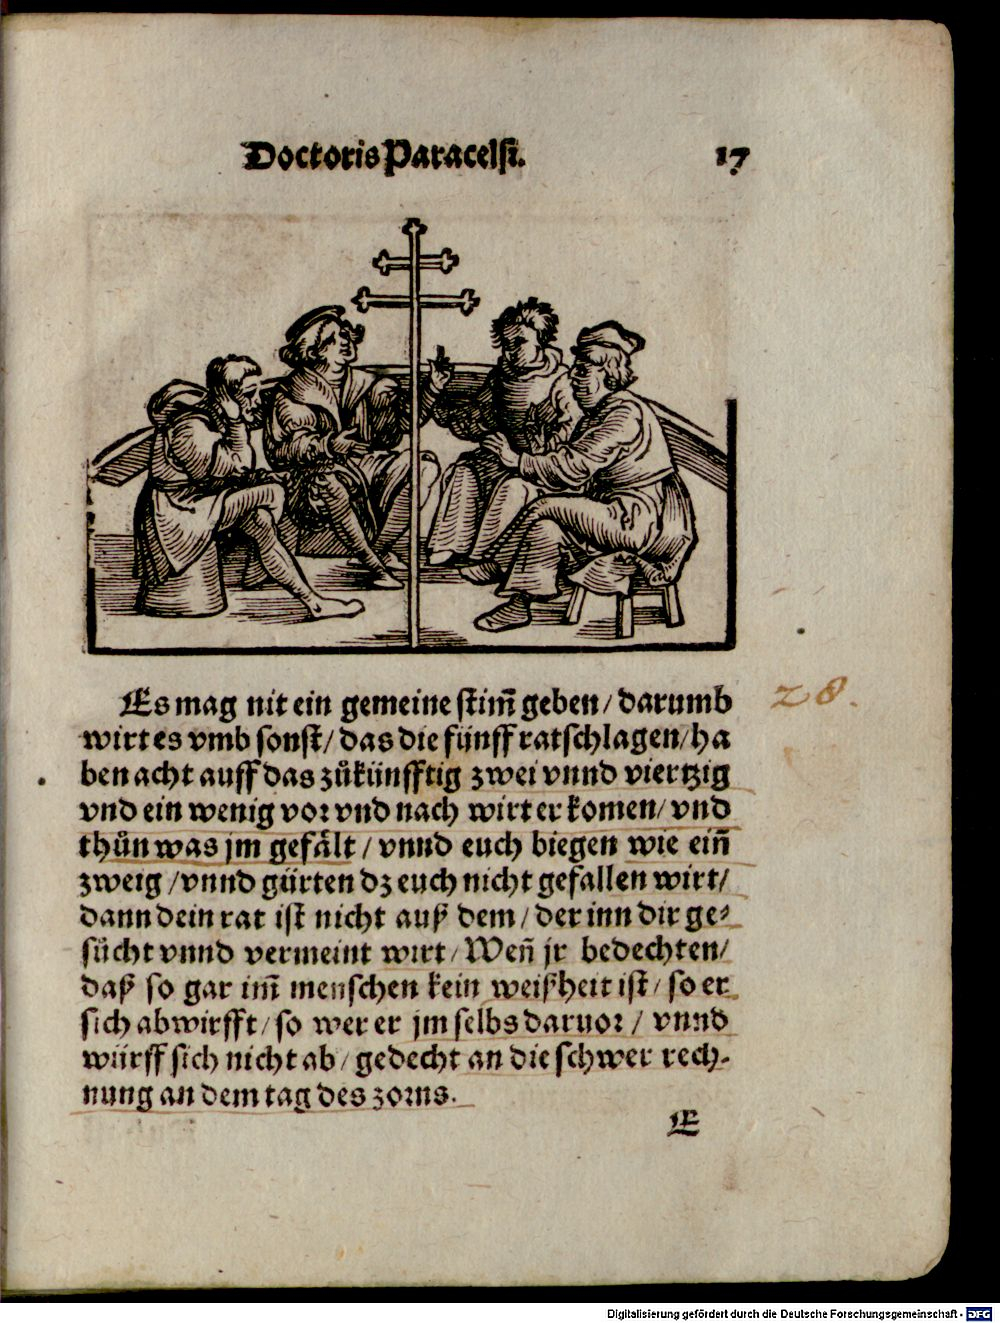 Doctoris Paracelsi. 17
Es mag nit ein gemeine stim̃ geben / darumb
wirt es vmb sonst / das die fünff ratschlagen / ha
ben acht auff das zůkünfftig zwei vnnd viertzig
vnd ein wenig vor vnd nach wirt er komen / vnd
thůn was jm gefålt / vnnd euch biegen wie ein̄
zweig / vnnd gürten dz euch nicht gefallen wirt /
dann dein rat ist nicht auß dem / der inn dir ge⸗
sücht vnnd vermeint wirt / Wen̄ jr bedechten /
daß so gar im̃ menschen kein weißheit ist / so er
sich abwirfft / so wer er jm selbs daruor / vnnd
würff sich nicht ab / gedecht an die schwer rech-
nung an dem tag des zorns.
E
28.
Digitalisierung gefördert durch die Deutsche Forschungsgemeinschaft - DFG